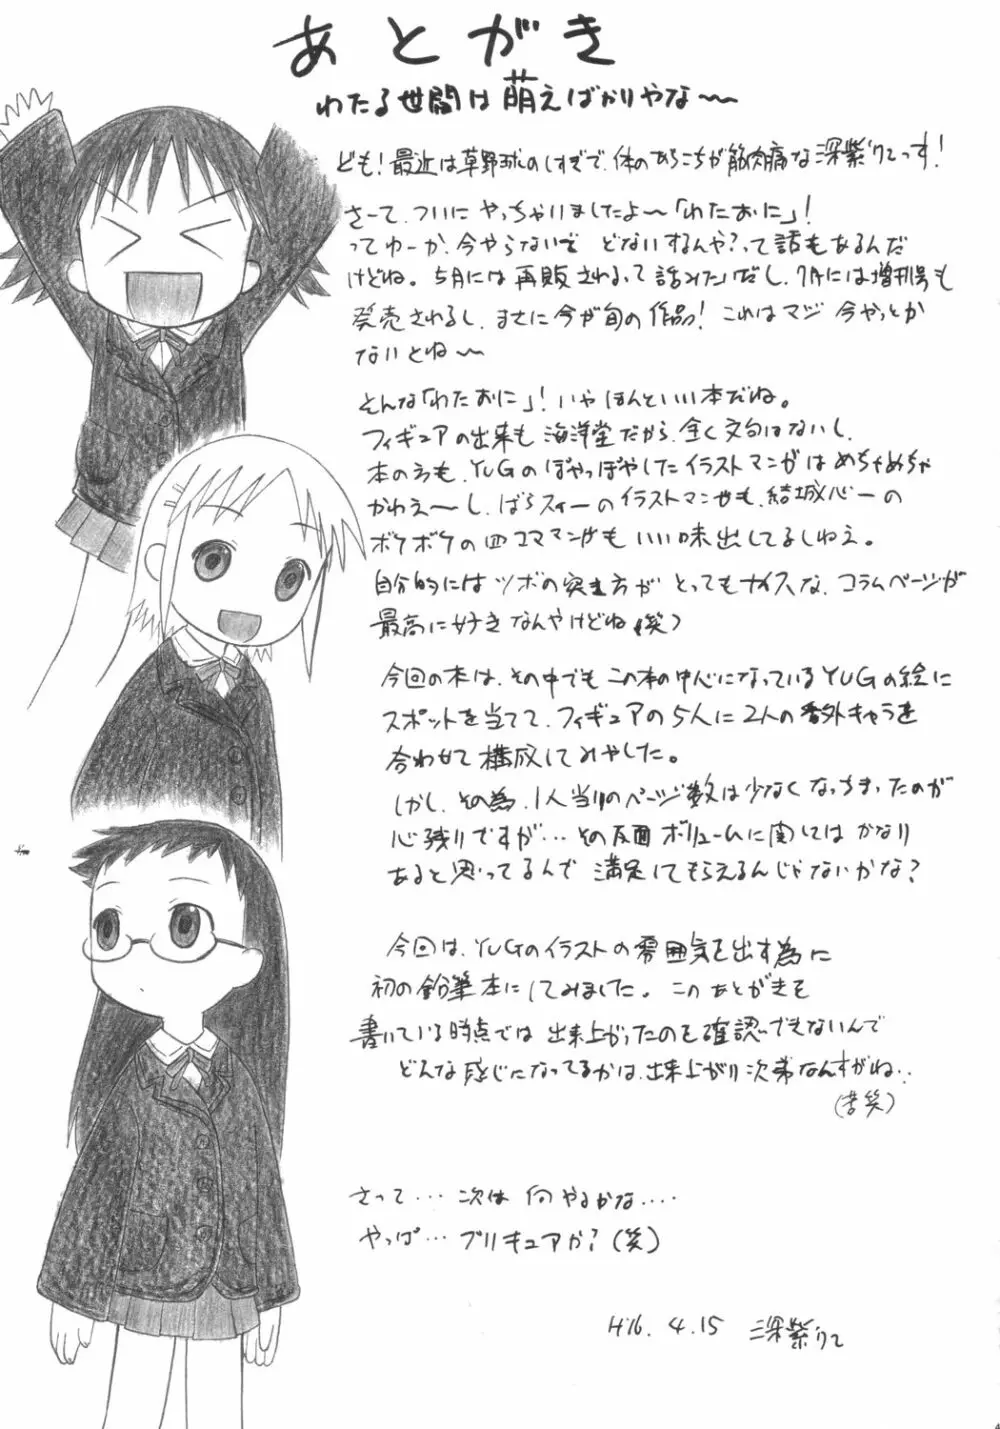 あとがき
わたる世間は萌えばかりやな〜
ども！最近は草野球のしすぎで、体のあちこちが筋肉痛な深紫りてっす！
さーて、ついにやっちゃいましたよ〜「わたおに」！
ってゆーか、今やらないでどないするんや？って話もあるんだ
けどね。5月には再販されるって話みたいだし、7月には増刊号も
発売されるし、まさに今が旬の作品！これはマジ今やっとか
ないとね〜
そんな「わたおに」！いやほんといい本だね。
フィギュアの出来も海洋堂だから、全く文句はないし、
本の方も、YUGのぽやっぽやしたイラストマンガはめちゃめちゃ
かわえ〜し、ばらスィーのイラストマンガも、結城心一の
ボケボケの四コママンガもいい味出してるしねえ。
自分的にはツボの突き方がとってもナイスな、コラムページが
最高に好きなんやけどね（笑）
今回の本は、その中でもこの本の中心になっているYUGの絵に
スポットを当てて、フィギュアの5人に2人の番外キャラを
合わせて構成してみやした。
しかし、その為、1人当りのページ数は少なくなっちまったのが
心残りですが…その反面ボリュームに関してはかなり
あると思ってるんで満足してもらえるんじゃないかな？
今回は、YUGのイラストの雰囲気を出す為に
初の鉛筆本にしてみました。このあとがきを
書いている時点では出来上がったのを確認できないんで
どんな感じになってるかは、出来上がり次第なんすがね‥
（苦笑）
さって…次は何やるかな‥‥
やっぱ…プリキュアか？（笑）
H16.4.15 深紫りて